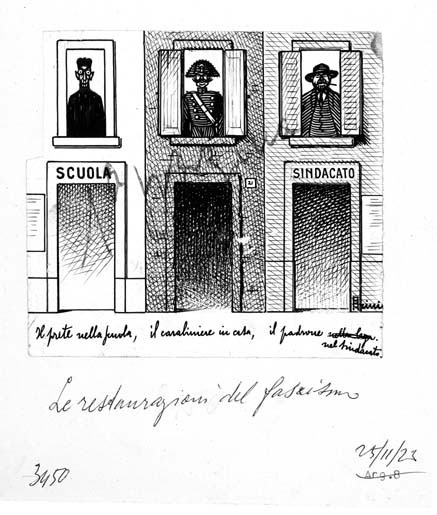 SCUOLA
SINDACATO
Il prete nella scuola, il carabiniere in casa, il padrone
nel sindacato.
Le restaurazioni del fascismo
25/11/23
Arg.8
3450